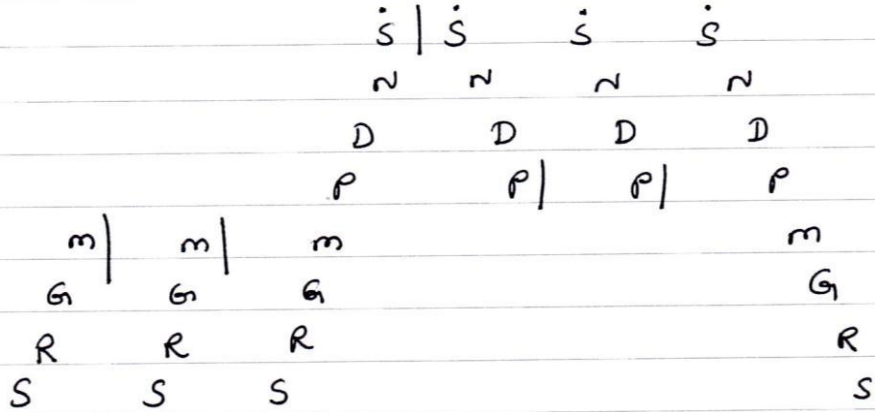 Ṡ | Ṡ Ṡ Ṡ
N N N N
D D D D
P P| P| P
m| m| m m
G G G G
R R R R
S S S S